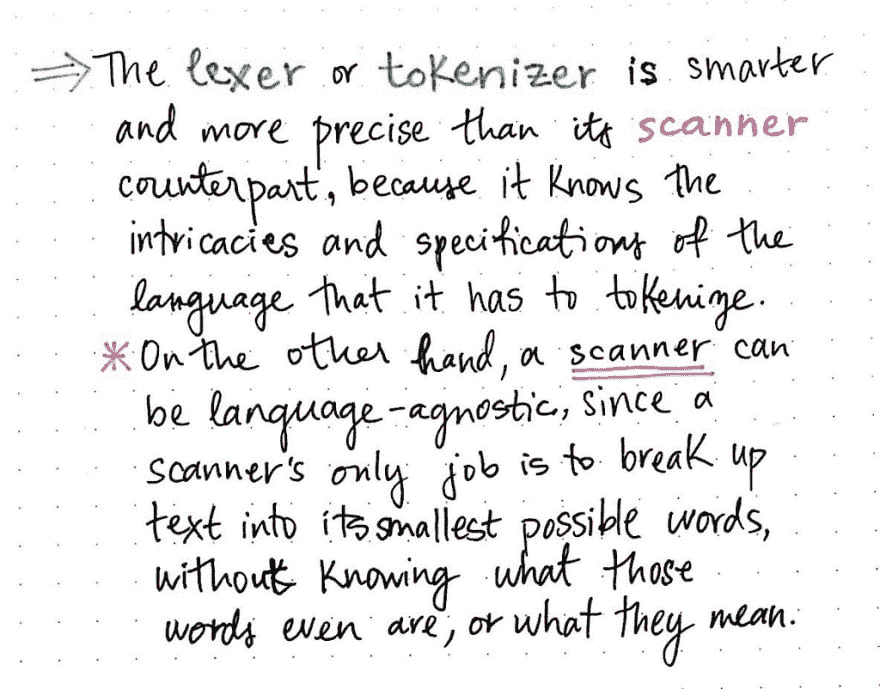 ⇒ The lexer or tokenizer is smarter
and more precise than its scanner
counterpart, because it knows the
intricacies and specifications of the
language that it has to tokenize.
* On the other hand, a scanner can
be language-agnostic, since a
scanner's only job is to break up
text into its smallest possible words,
without knowing what those
words even are, or what they mean.